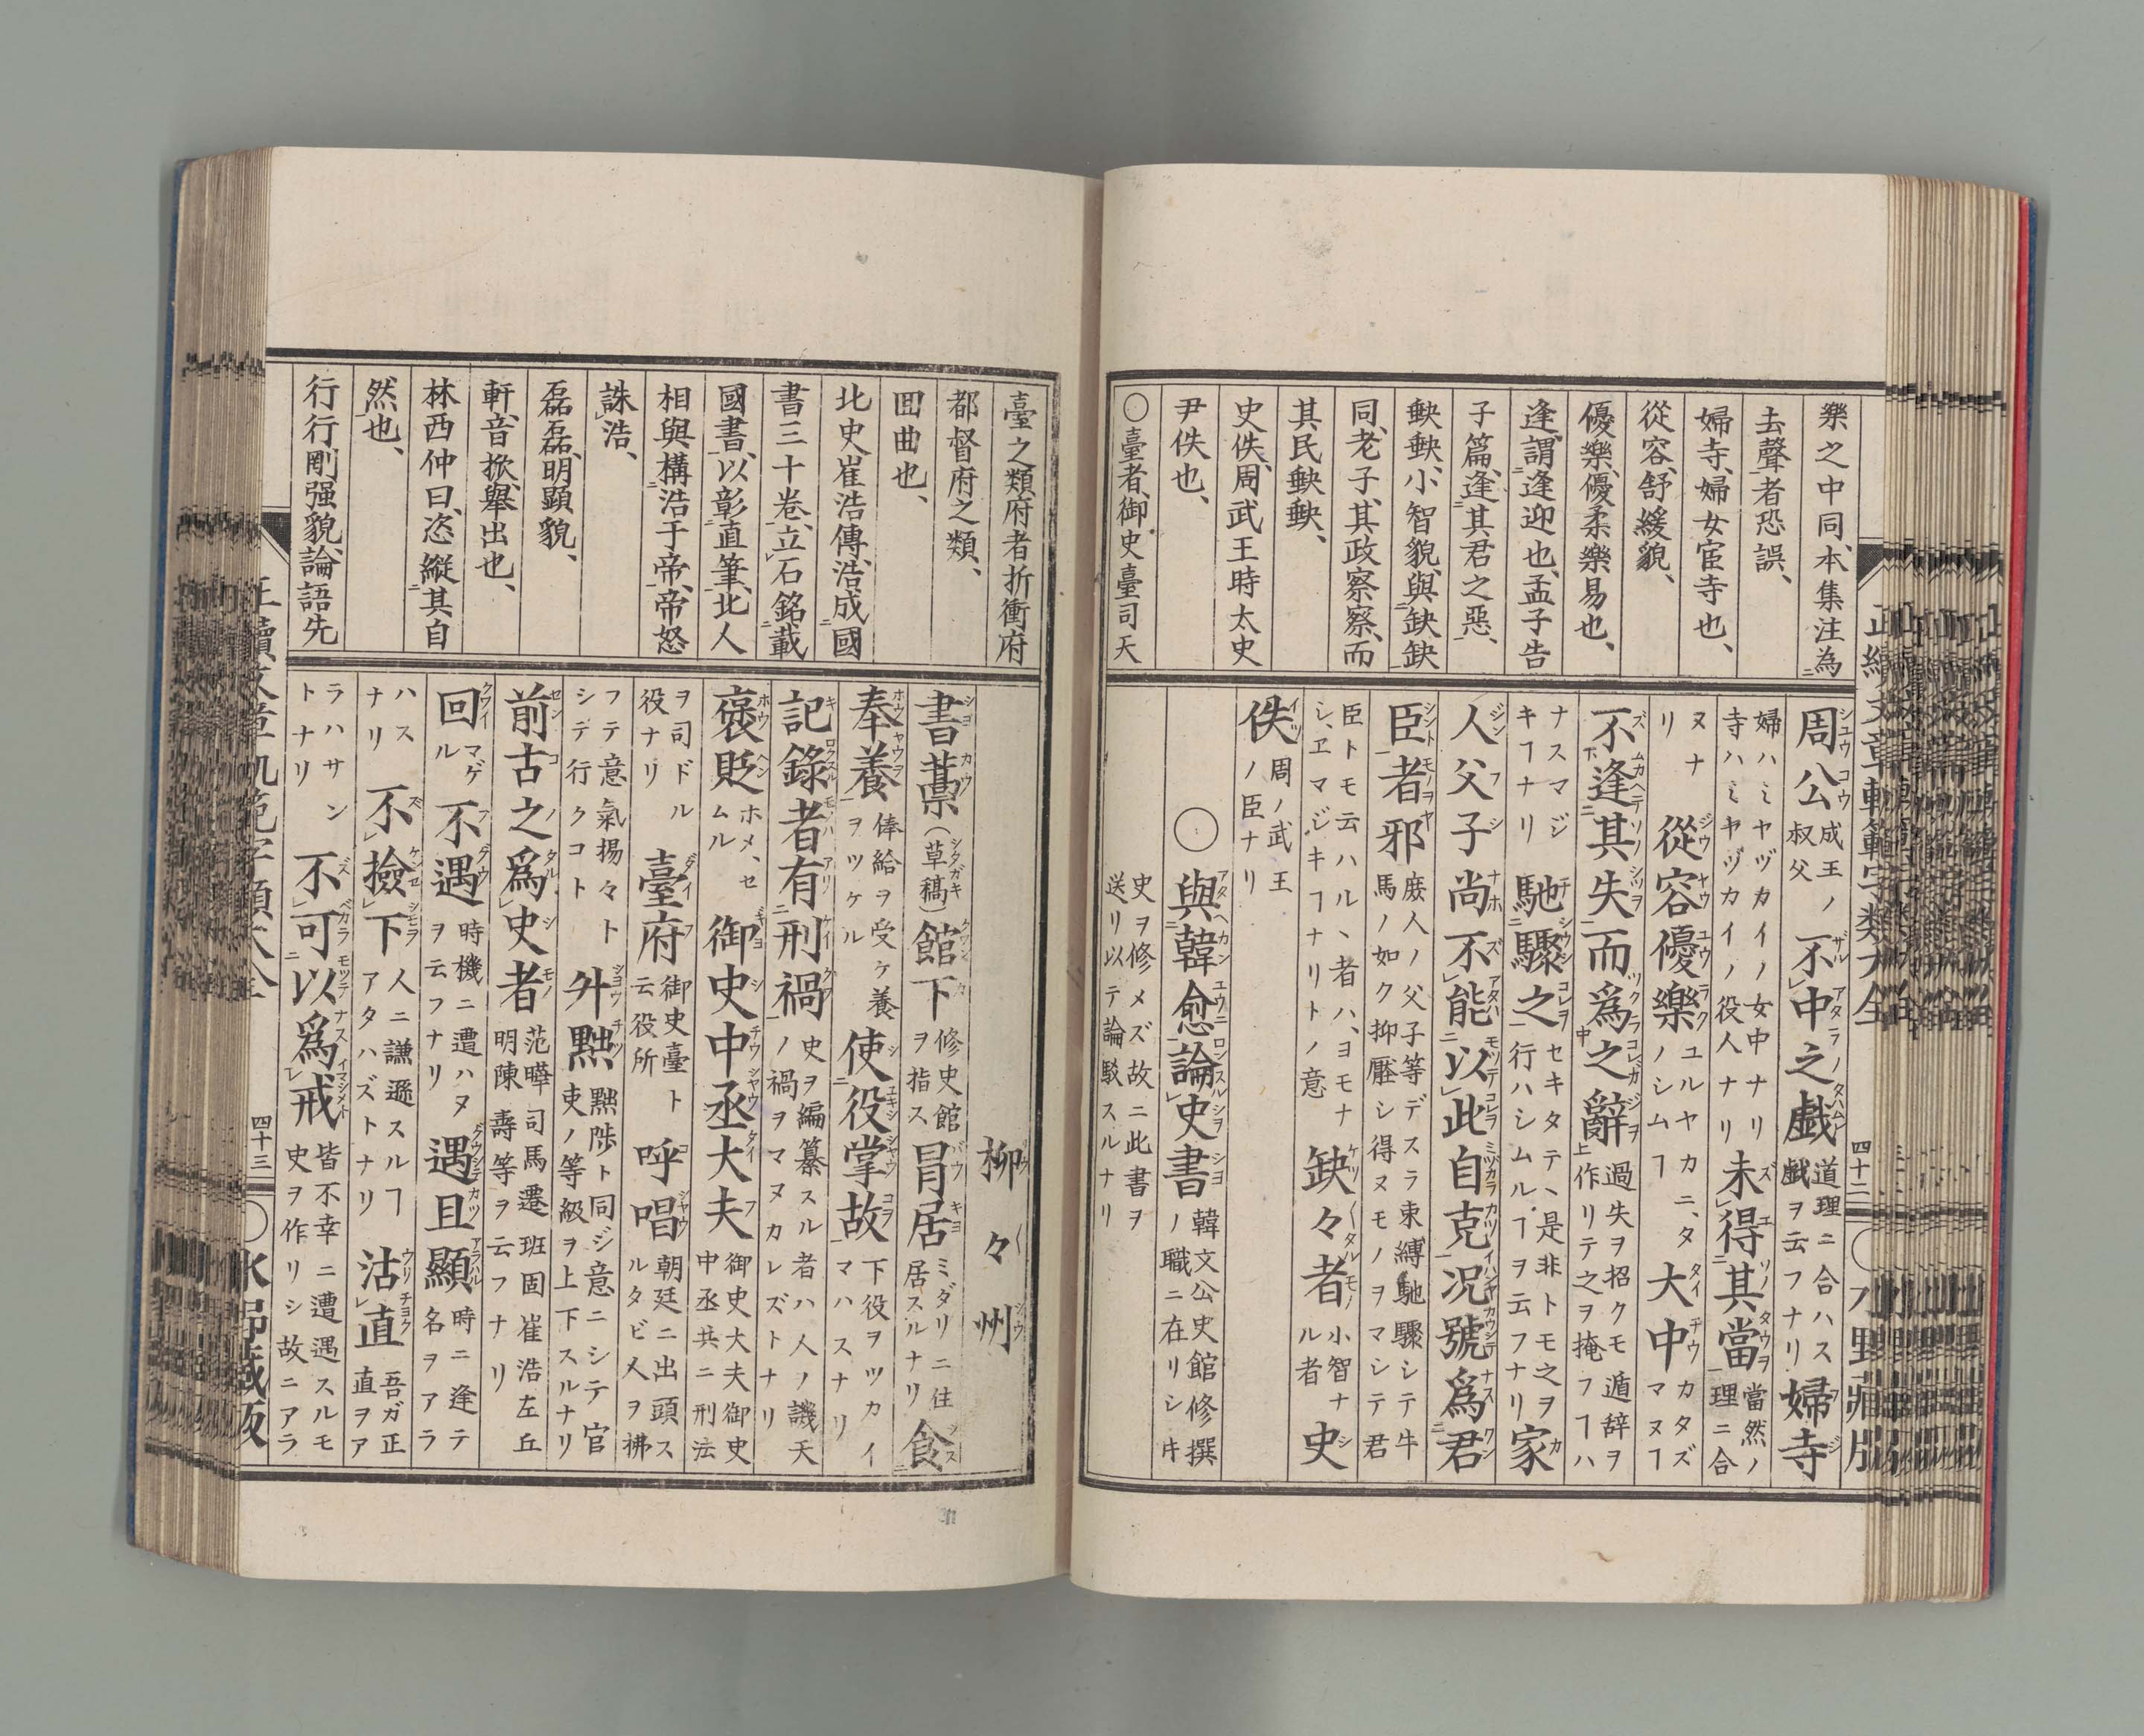 樂之中同、本集注為
去聲者恐誤、
婦寺、婦女宦寺也、
從容、舒緩貌、
優樂、優柔樂易也、
逢、謂逢迎也、孟子告
子篇、逢其君之惡、
缺缺、小智貌、與缺缺
同、老子、其政察察、而
其民缺缺、
史佚、周武王時太史
尹佚也、
○臺者、御史臺司天
周公 成王ノ叔父 不中之戲 道理ニ合ハス戯ヲ云フナリ 婦寺
婦ハミヤヅカイノ女中ナリ寺ハミヤヅカイノ役人ナリ 未得其當 當然ノ理ニ合
ヌナリ 從容優樂 ユルヤカニ、タノシム 大中 カタズマヌヿ
不逢其失而爲之辭 過失ヲ招クモ遁辞ヲ作リテ之ヲ掩フヿハ
ナスマジキヿナリ 馳驟之 セキタテヽ是非トモ之ヲ行ハシムルヿヲ云フナリ 家
人父子尚不能以此自克况號爲君
臣者邪 庶人ノ父子等デスラ束縛馳驟シテ牛馬ノ如ク抑壓シ得ヌモノヲマシテ君
臣トモ云ハルヽ者ハ、ヨモナシ、エマジキヿナリトノ意 缺々者 小智ナル者 史
佚 周ノ武王ノ臣ナリ
○與韓愈論史書 韓文公史館修撰ノ職ニ在リシ㆐
史ヲ修メズ故ニ此書ヲ送リ以テ論駁スルナリ
四十二
臺之類、府者折衝府
都督府之類、
回曲也、
北史崔浩傳、浩成國
書三十卷、立石銘載
國書、以彰直筆、北人
相與構浩于帝、帝怒
誅浩、
磊磊、明顯貌、
軒、音掀、舉出也、
林西仲曰、恣縱其自
然也、
行行、剛强貌、論語先
柳々州
書藁(草稿) 館下 修史館ヲ指ス 冒居 ミダリニ住居スルナリ 食
奉養 俸給ヲ受ケ養ヲツケル 使役掌故 下役ヲツカイマハスナリ
記錄者有刑禍 史ヲ編纂スル者ハ人ノ譏天ノ禍ヲマヌカレズトナリ
褒貶 ホメ、セムル 御史中丞大夫 御史大夫御史中丞共ニ刑法
ヲ司ドル役ナリ 臺府 御史臺ト云役所 呼唱 朝廷ニ出頭スルタビ人ヲ拂
フテ意氣揚々トシテ行クコト 外黜 黜陟ト同ジ意ニシテ官吏ノ等級ヲ上下スルナリ
前古之爲史者 范曄司馬遷班固崔浩左丘明陳壽等ヲ云フナリ
回 マゲル 不遇 時機ニ遭ハヌヲ云フナリ 遇且顯 時ニ逢テ名ヲアラ
ハスナリ 不撿下 人ニ謙遜スルヿアタハズトナリ 沽直 吾ガ正直ヲア
ラハサントナリ 不可以爲戒 皆不幸ニ遭遇スルモ史ヲ作リシ故ニアラ
四十三